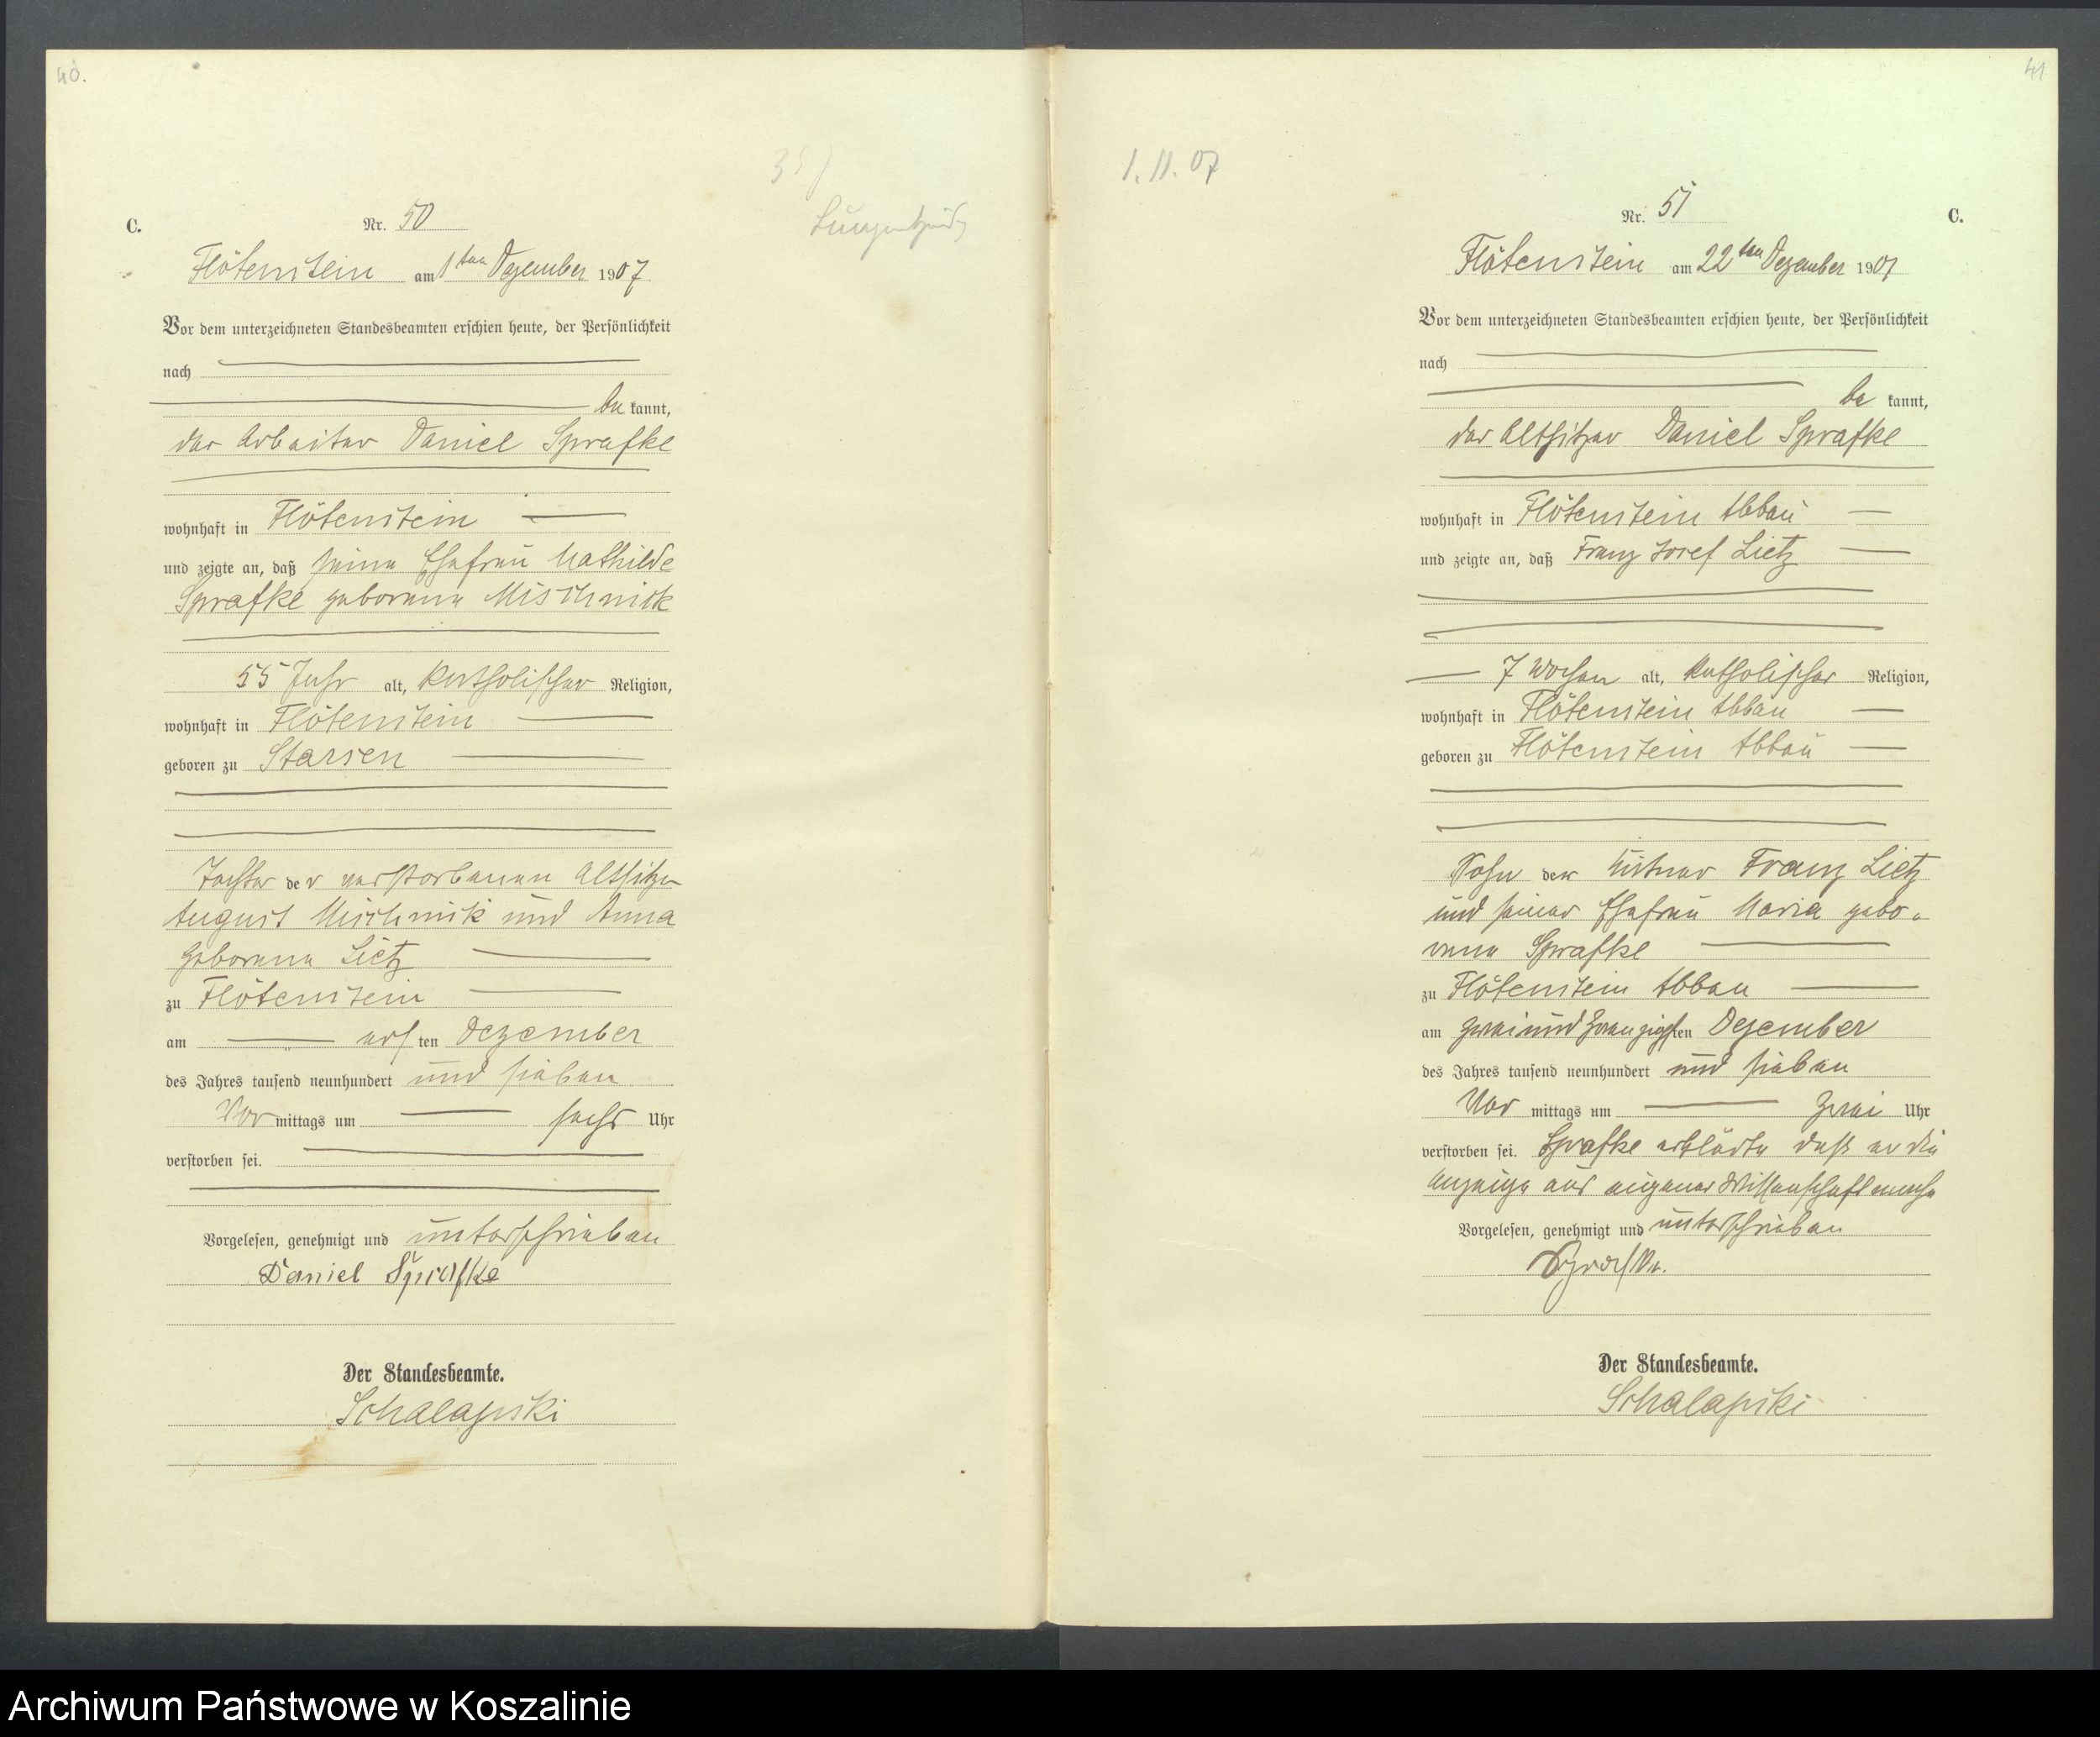 40.
C.
Nr. 50
Flötenstein am 1ten Dezember 1907
Vor dem unterzeichneten Standesbeamten erschien heute, der Persönlichkeit
nach
be kannt,
der Arbeiter Daniel Sprafke
wohnhaft in Flötenstein
und zeigte an, daß seine Ehefrau Mathilde
Sprafke geborene Mischnick
55 Jahr alt, katholischer Religion,
wohnhaft in Flötenstein
geboren zu Starsen
Tochter der verstorbenen Altsitzer
August Mischnik und Anna
geborene Lietz
zu Flötenstein
am ersten Dezember
des Jahres tausend neunhundert und sieben
Vor mittags um sechs Uhr
verstorben sei.
Vorgelesen, genehmigt und unterschrieben
Daniel Sprafke
Der Standesbeamte.
Schalapski
41
1.11.07
Nr. 51
C.
Flötenstein am 22ten Dezember 1907
Vor dem unterzeichneten Standesbeamten erschien heute, der Persönlichkeit
nach
be kannt,
der Altsitzer Daniel Sprafke
wohnhaft in Flötenstein Abbau
und zeigte an, daß Franz Josef Lietz
7 Wochen alt, katholischer Religion,
wohnhaft in Flötenstein Abbau
geboren zu Flötenstein Abbau
Sohn der Franz Lietz
und seiner Ehefrau Maria gebo-
rene Sprafke
zu Flötenstein Abbau
am zweiundzwanzigsten Dezember
des Jahres tausend neunhundert und sieben
Vor mittags um zwei Uhr
verstorben sei. Sprafke erklärte daß er die
Anzeige aus eigener Wissenschaft mache
Vorgelesen, genehmigt und unterschrieben
Sprafke.
Der Standesbeamte.
Schalapski
Archiwum Państwowe w Koszalinie